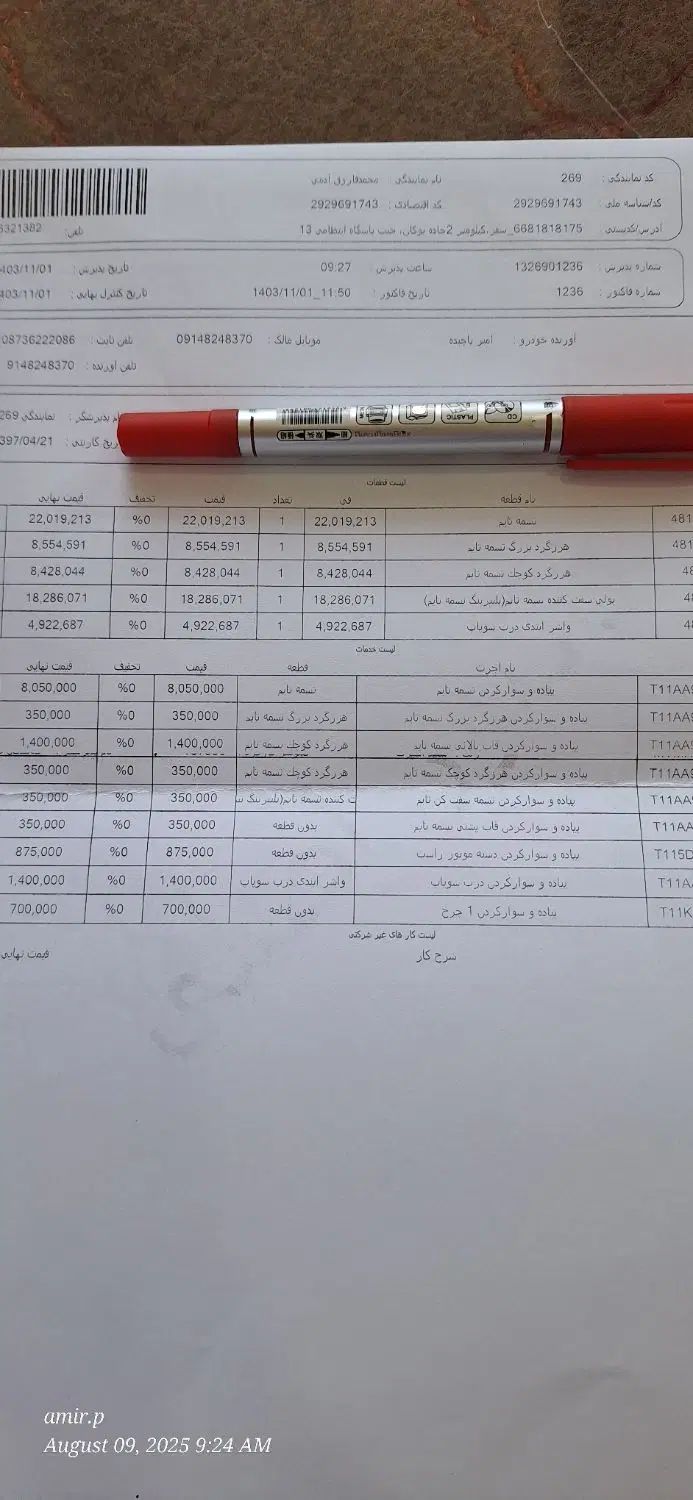 کد نمایندگی : 269 نام نمایندگی : محمدفاروق آدمی
کد/شناسه ملی : 2929691743 کد اقتصادی : 2929691743
آدرس/کدپستی 6681818175_سقز،کیلومتر 2جاده بوکان، جنب پاسگاه انتظامی 13 تلفن: 6321382
شماره پذیرش : 1326901236 ساعت پذیرش : 09:27 تاریخ پذیرش : 403/11/01
شماره فاکتور : 1236 تاریخ فاکتور : 1403/11/01_11:50 تاریخ کنترل نهایی : 403/11/01
آورنده خودرو : امیر موبایل مالک : 09148248370 تلفن ثابت : 08736222086
تلفن آورنده : 9148248370
ام پذیرشگر : نمایندگی 269
397/04/21
CD PLASTIC
لیست قطعات
نام قطعه فی تعداد قیمت تخفیف قیمت نهایی
481 تسمه تایم 22,019,213 1 22,019,213 %0 22,019,213
481 هرزگرد بزرگ تسمه تایم 8,554,591 1 8,554,591 %0 8,554,591
48 هرزگرد کوچک تسمه تایم 8,428,044 1 8,428,044 %0 8,428,044
48 پولی سفت کننده تسمه تایم(بلبرینگ تسمه تایم) 18,286,071 1 18,286,071 %0 18,286,071
48 واشر آببندی درب سوپاپ 4,922,687 1 4,922,687 %0 4,922,687
لیست خدمات
نام اجرت قطعه قیمت تخفیف قیمت نهایی
T11AA پیاده و سوارکردن تسمه تایم تسمه تایم 8,050,000 %0 8,050,000
T11AA پیاده و سوارکردن هرزگرد بزرگ تسمه تایم هرزگرد بزرگ تسمه تایم 350,000 %0 350,000
T11AA پیاده و سوارکردن قاب بالائی تسمه تایم هرزگرد کوچک تسمه تایم 1,400,000 %0 1,400,000
T11AA پیاده و سوارکردن هرزگرد کوچک تسمه تایم هرزگرد کوچک تسمه تایم 350,000 %0 350,000
T11AA پیاده و سوارکردن تسمه سفت کن تایم ت کننده تسمه تایم(بلبرینگ 350,000 %0 350,000
T11AA پیاده و سوارکردن قاب پشتی تسمه تایم بدون قطعه 350,000 %0 350,000
T115D پیاده و سوارکردن دسته موتور راست بدون قطعه 875,000 %0 875,000
T11A پیاده و سوارکردن درب سوپاپ واشر آببندی درب سوپاپ 1,400,000 %0 1,400,000
T11K پیاده و سوارکردن 1 چرخ بدون قطعه 700,000 %0 700,000
لیست کار های غیر شرکتی
شرح کار قیمت نهایی
amir.p
August 09, 2025 9:24 AM